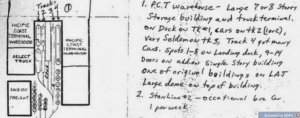 Tracks
1 2 3 4
①
PACIFIC
COAST
TERMINAL
WAREHOUSE
PACIFIC
COAST
TERMINAL
WAREHOUSE
SELECT
TRUCK
FREIGHT
1. P.C.T Warehouse - Large 7 or 8 Story
Storage building and truck terminal.
on Deck on TR#1, cars on tk 2 (over),
Very Seldom on tk 3, Track 4 get many
Cars. Spots 1-8 on Loading dock, 9-14
Doors on addin Single Story building
one of original buildings on LAJ
Large dome on top of building.
2. Star Line #2 - occational box Car
1 per week